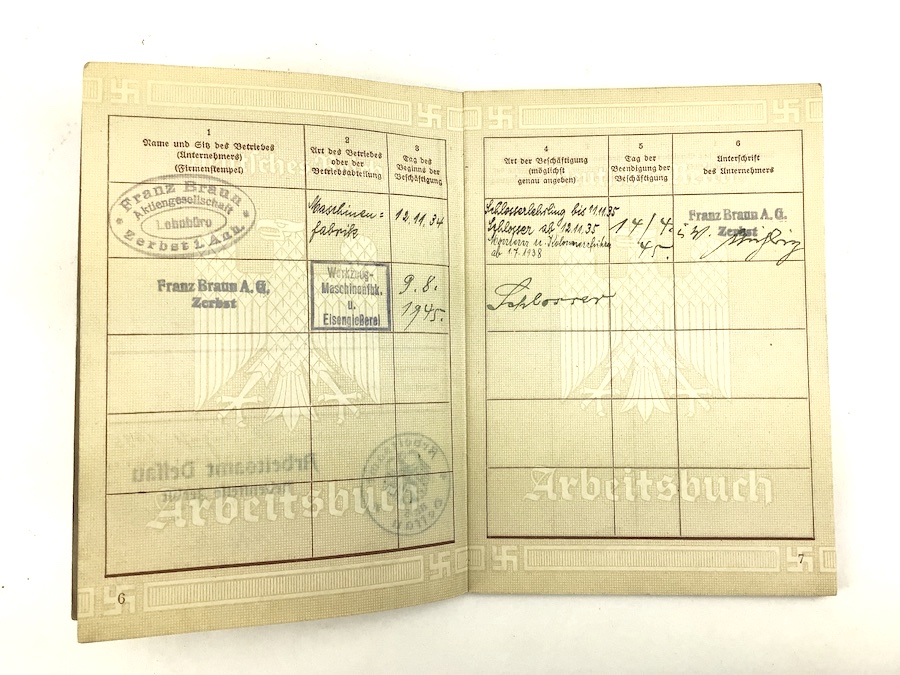 1
Name und Sitz des Betriebes
(Unternehmers)
(Firmenstempel)
2
Art des Betriebes
oder der
Betriebsabteilung
3
Tag des
Beginns der
Beschäftigung
Franz Braun
Aktiengesellschaft
Lohnbüro
Zerbst i. Anh.
Maschinen=
fabrik
12.11.34
Franz Braun A. G.
Zerbst
Werkzeug-
Maschinenfbk.
u.
Eisengießerei
9. 8.
1945.
Arbeitsamt Dessau
Arbeitsbuch
6
4
Art der Beschäftigung
(möglichst
genau angeben)
5
Tag der
Beendigung der
Beschäftigung
6
Unterschrift
des Unternehmers
Schlosserlehrling bis 11.11.35
Schlosser ab 12.11.35
Monteur u. Kolonnenführer
ab 1.7.1938
14/4.
45.
Franz Braun A. G.
Zerbst
Schlosser
Arbeitsbuch
7